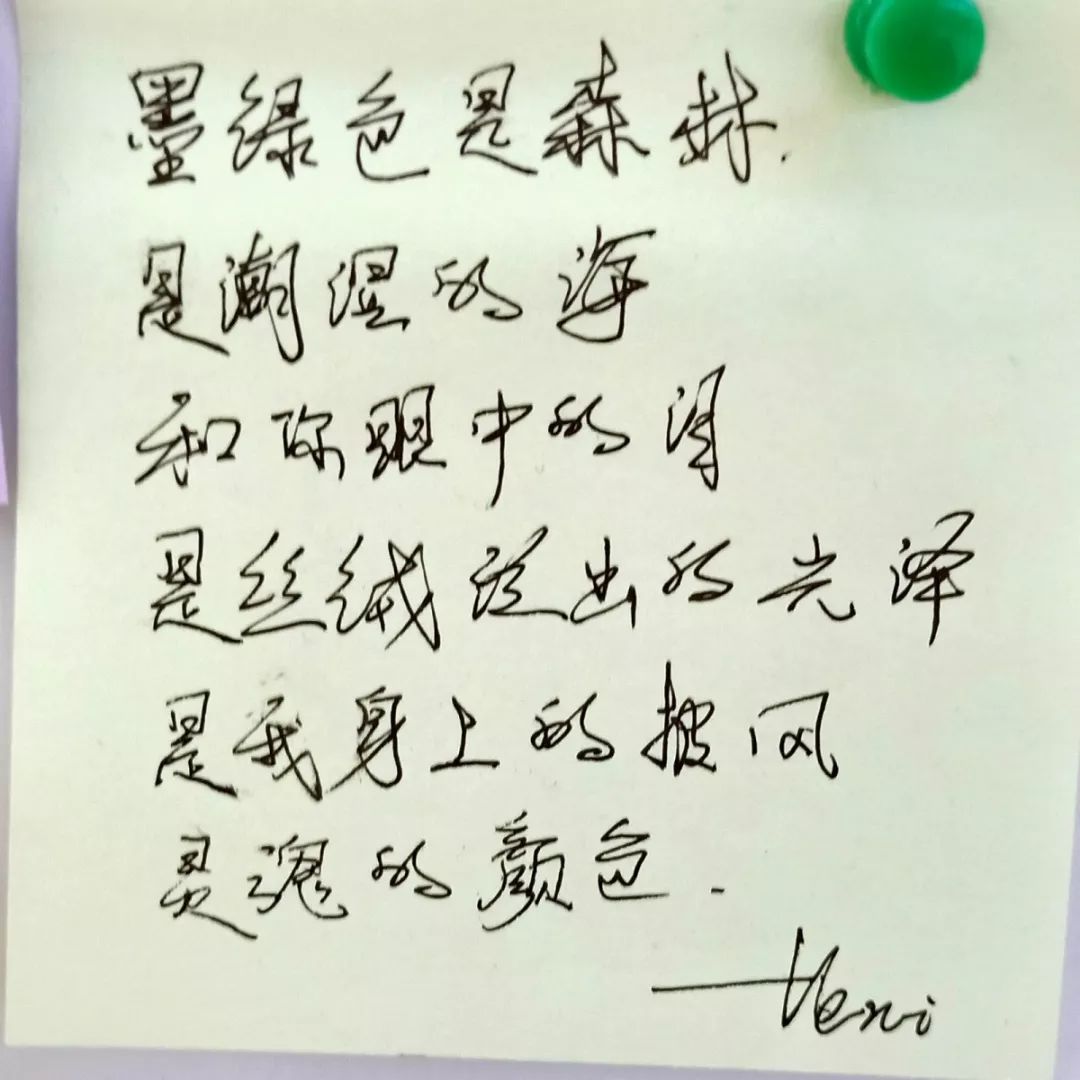 墨绿色是森林.
是潮湿的海
和你眼中的泪
是丝绒出的光泽
是我身上的披风
灵魂的颜色.